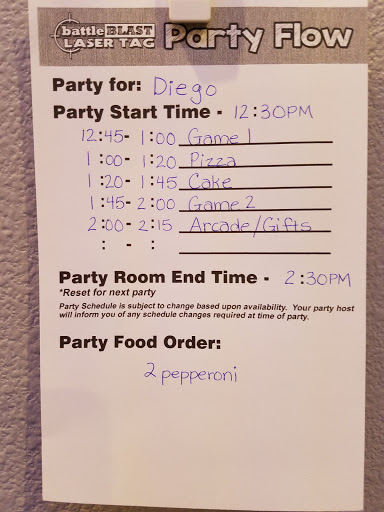 battle BLAST
LASER TAG
Party Flow
Party for: Diego
Party Start Time - 12:30PM
12:45- 1:00 Game 1
1:00- 1:20 Pizza
1:20- 1:45 Cake
1:45- 2:00 Game 2
2:00- 2:15 Arcade/Gifts
: - :
Party Room End Time - 2:30PM
*Reset for next party
Party Schedule is subject to change based upon availability. Your party host
will inform you of any schedule changes required at time of party.
Party Food Order:
2 pepperoni